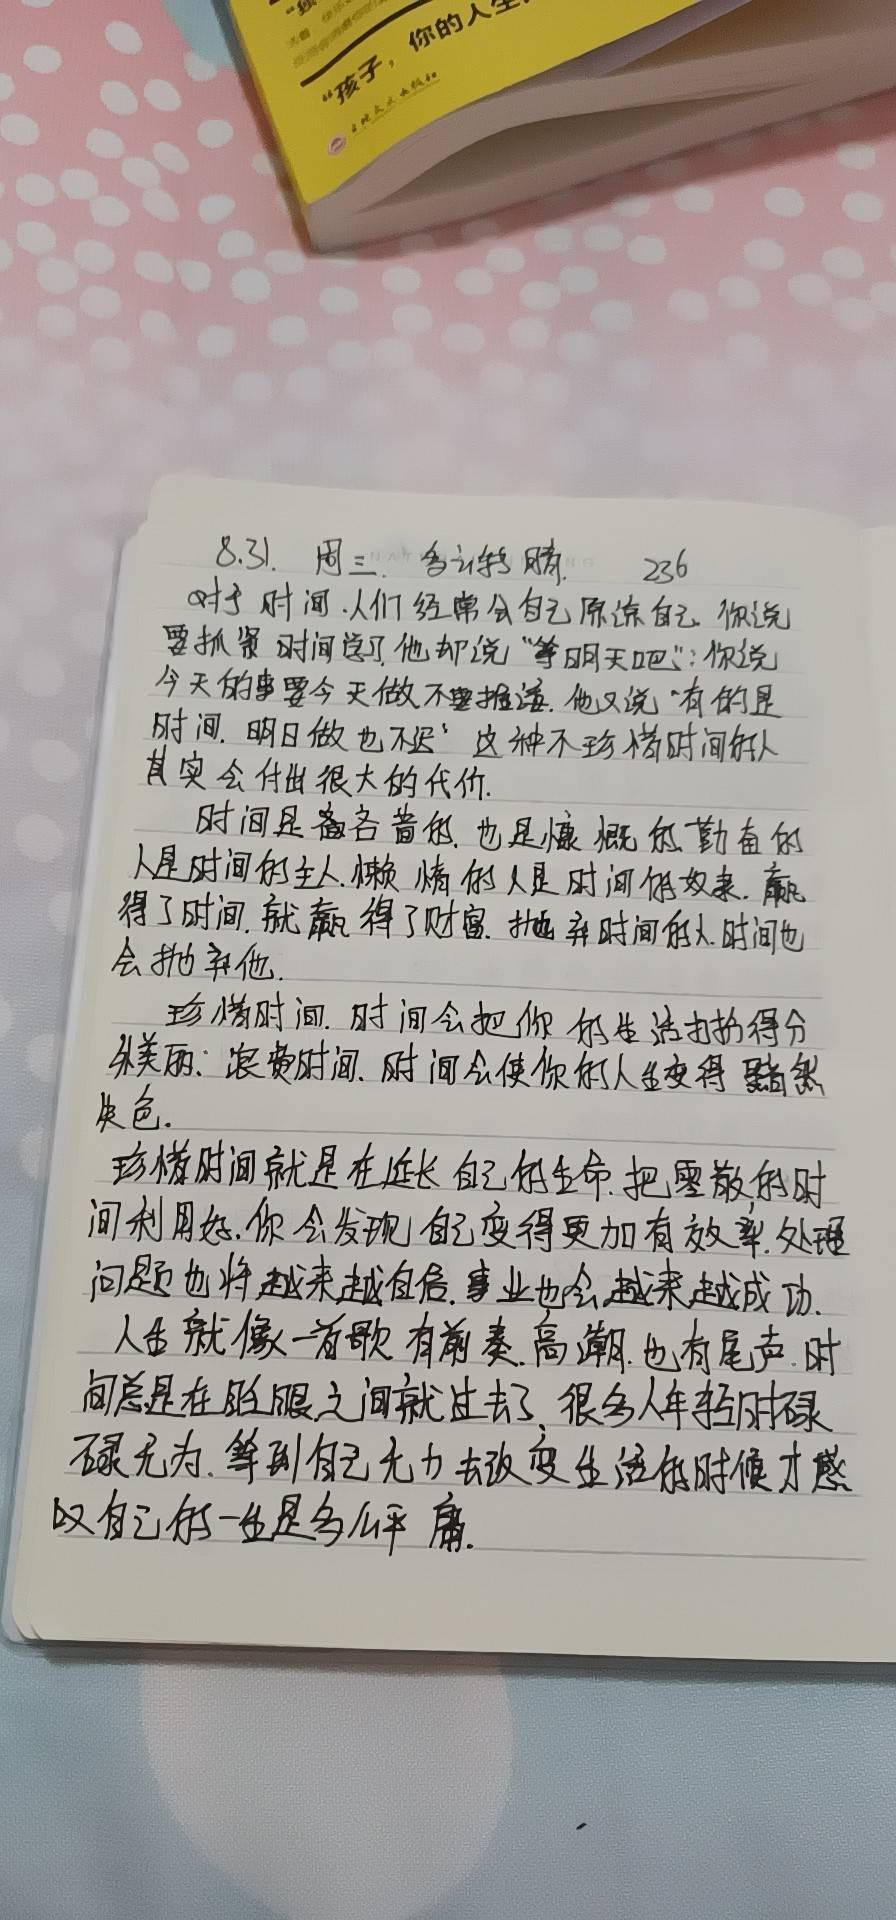 "孩子，你的人生
8.31. 周三. 多云转晴. 236
对于时间.人们经常会自己原谅自己.你说
要抓紧时间学习.他却说"等明天吧";你说
今天的事要今天做不要推迟.他又说"有的是
时间.明日做也不迟"这种不珍惜时间的人
其实会付出很大的代价.
时间是吝啬的.也是慷慨的.勤奋的
人是时间的主人.懒惰的人是时间的奴隶.赢
得了时间.就赢得了财富.抛弃时间的人.时间也
会抛弃他.
珍惜时间.时间会把你的生活打扮得分
外美丽;浪费时间.时间会使你的人生变得黯然
失色.
珍惜时间就是在延长自己的生命.把零散的时
间利用好.你会发现自己变得更加有效率.处理
问题也将越来越自信.事业也会越来越成功.
人生就像一首歌有前奏.高潮.也有尾声.时
间总是在眨眼之间就过去了.很多人年轻时碌
碌无为.等到自己无力去改变生活的时候才感
叹自己的一生是多么平庸.